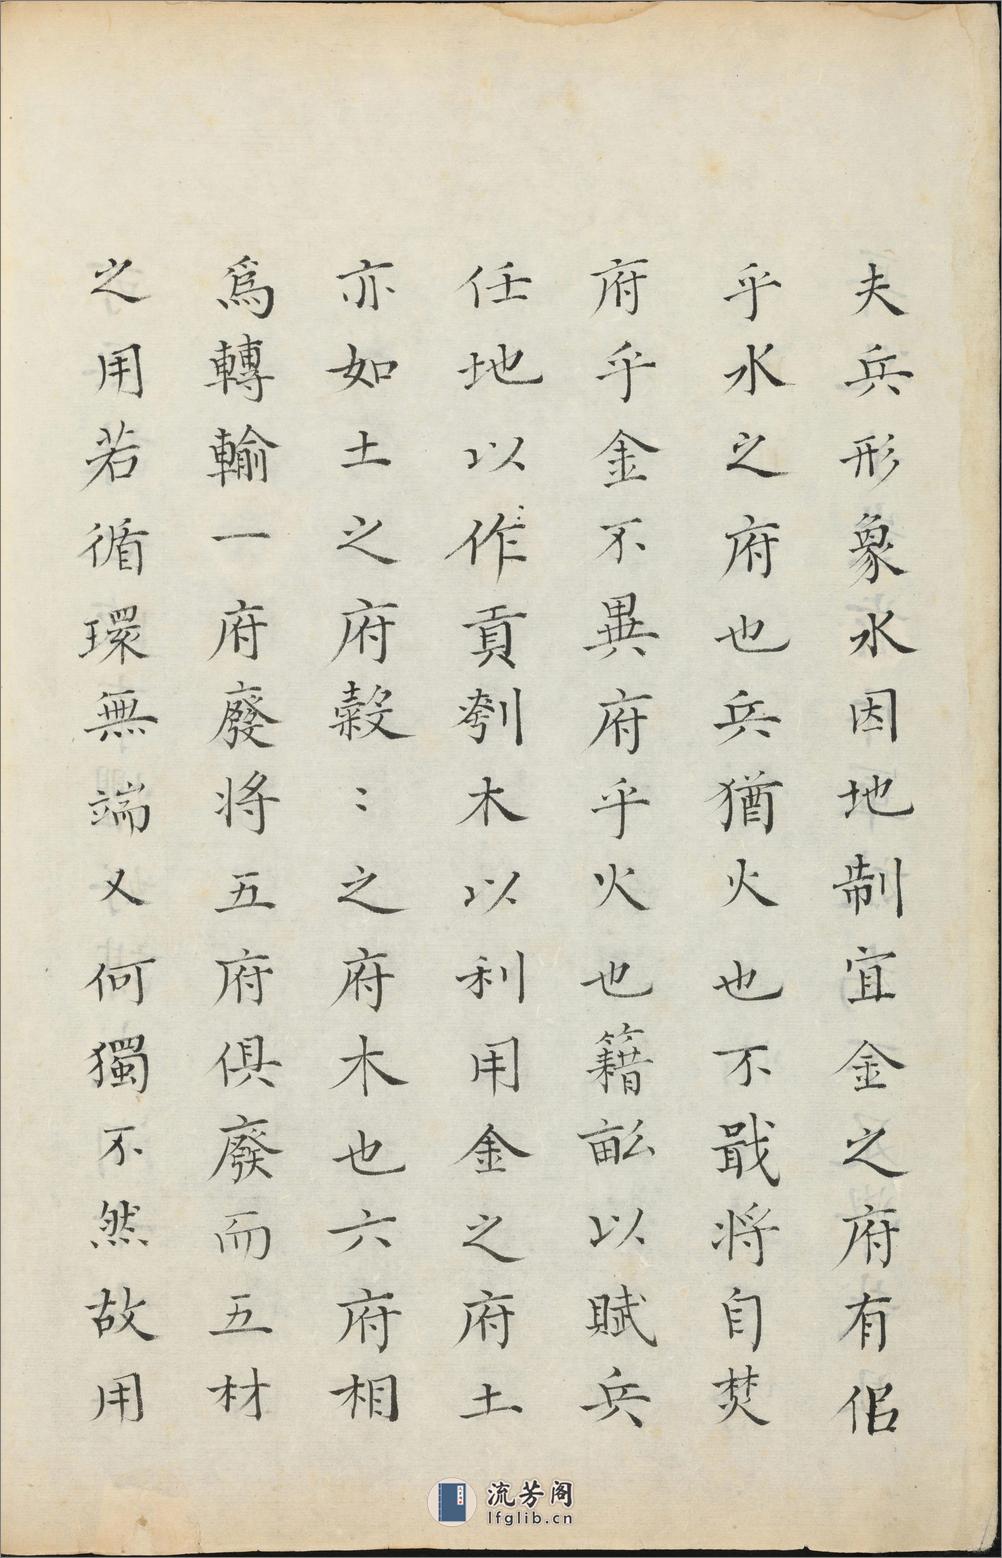 夫兵形象水因地制宜金之府有侣
乎水之府也兵猶火也不戢將自焚
府乎金不異府乎火也籍畝以賦兵
任地以作貢刳木以利用金之府土
亦如土之府穀：之府木也六府相
爲轉輸一府廢將五府俱廢而五材
之用若循環無端又何獨不然故用
流芳阁
lfglib.cn